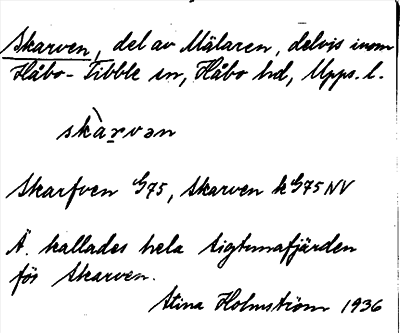 Skarven, del av Mälaren, delvis inom
Håbo-Tibble sn, Håbo hd, Upps. l.
skàrvən
Skarfven G75, Skarven k G75 NV
Ä. kallades hela Sigtunafjärden
för Skarven.
Stina Holmström 1936